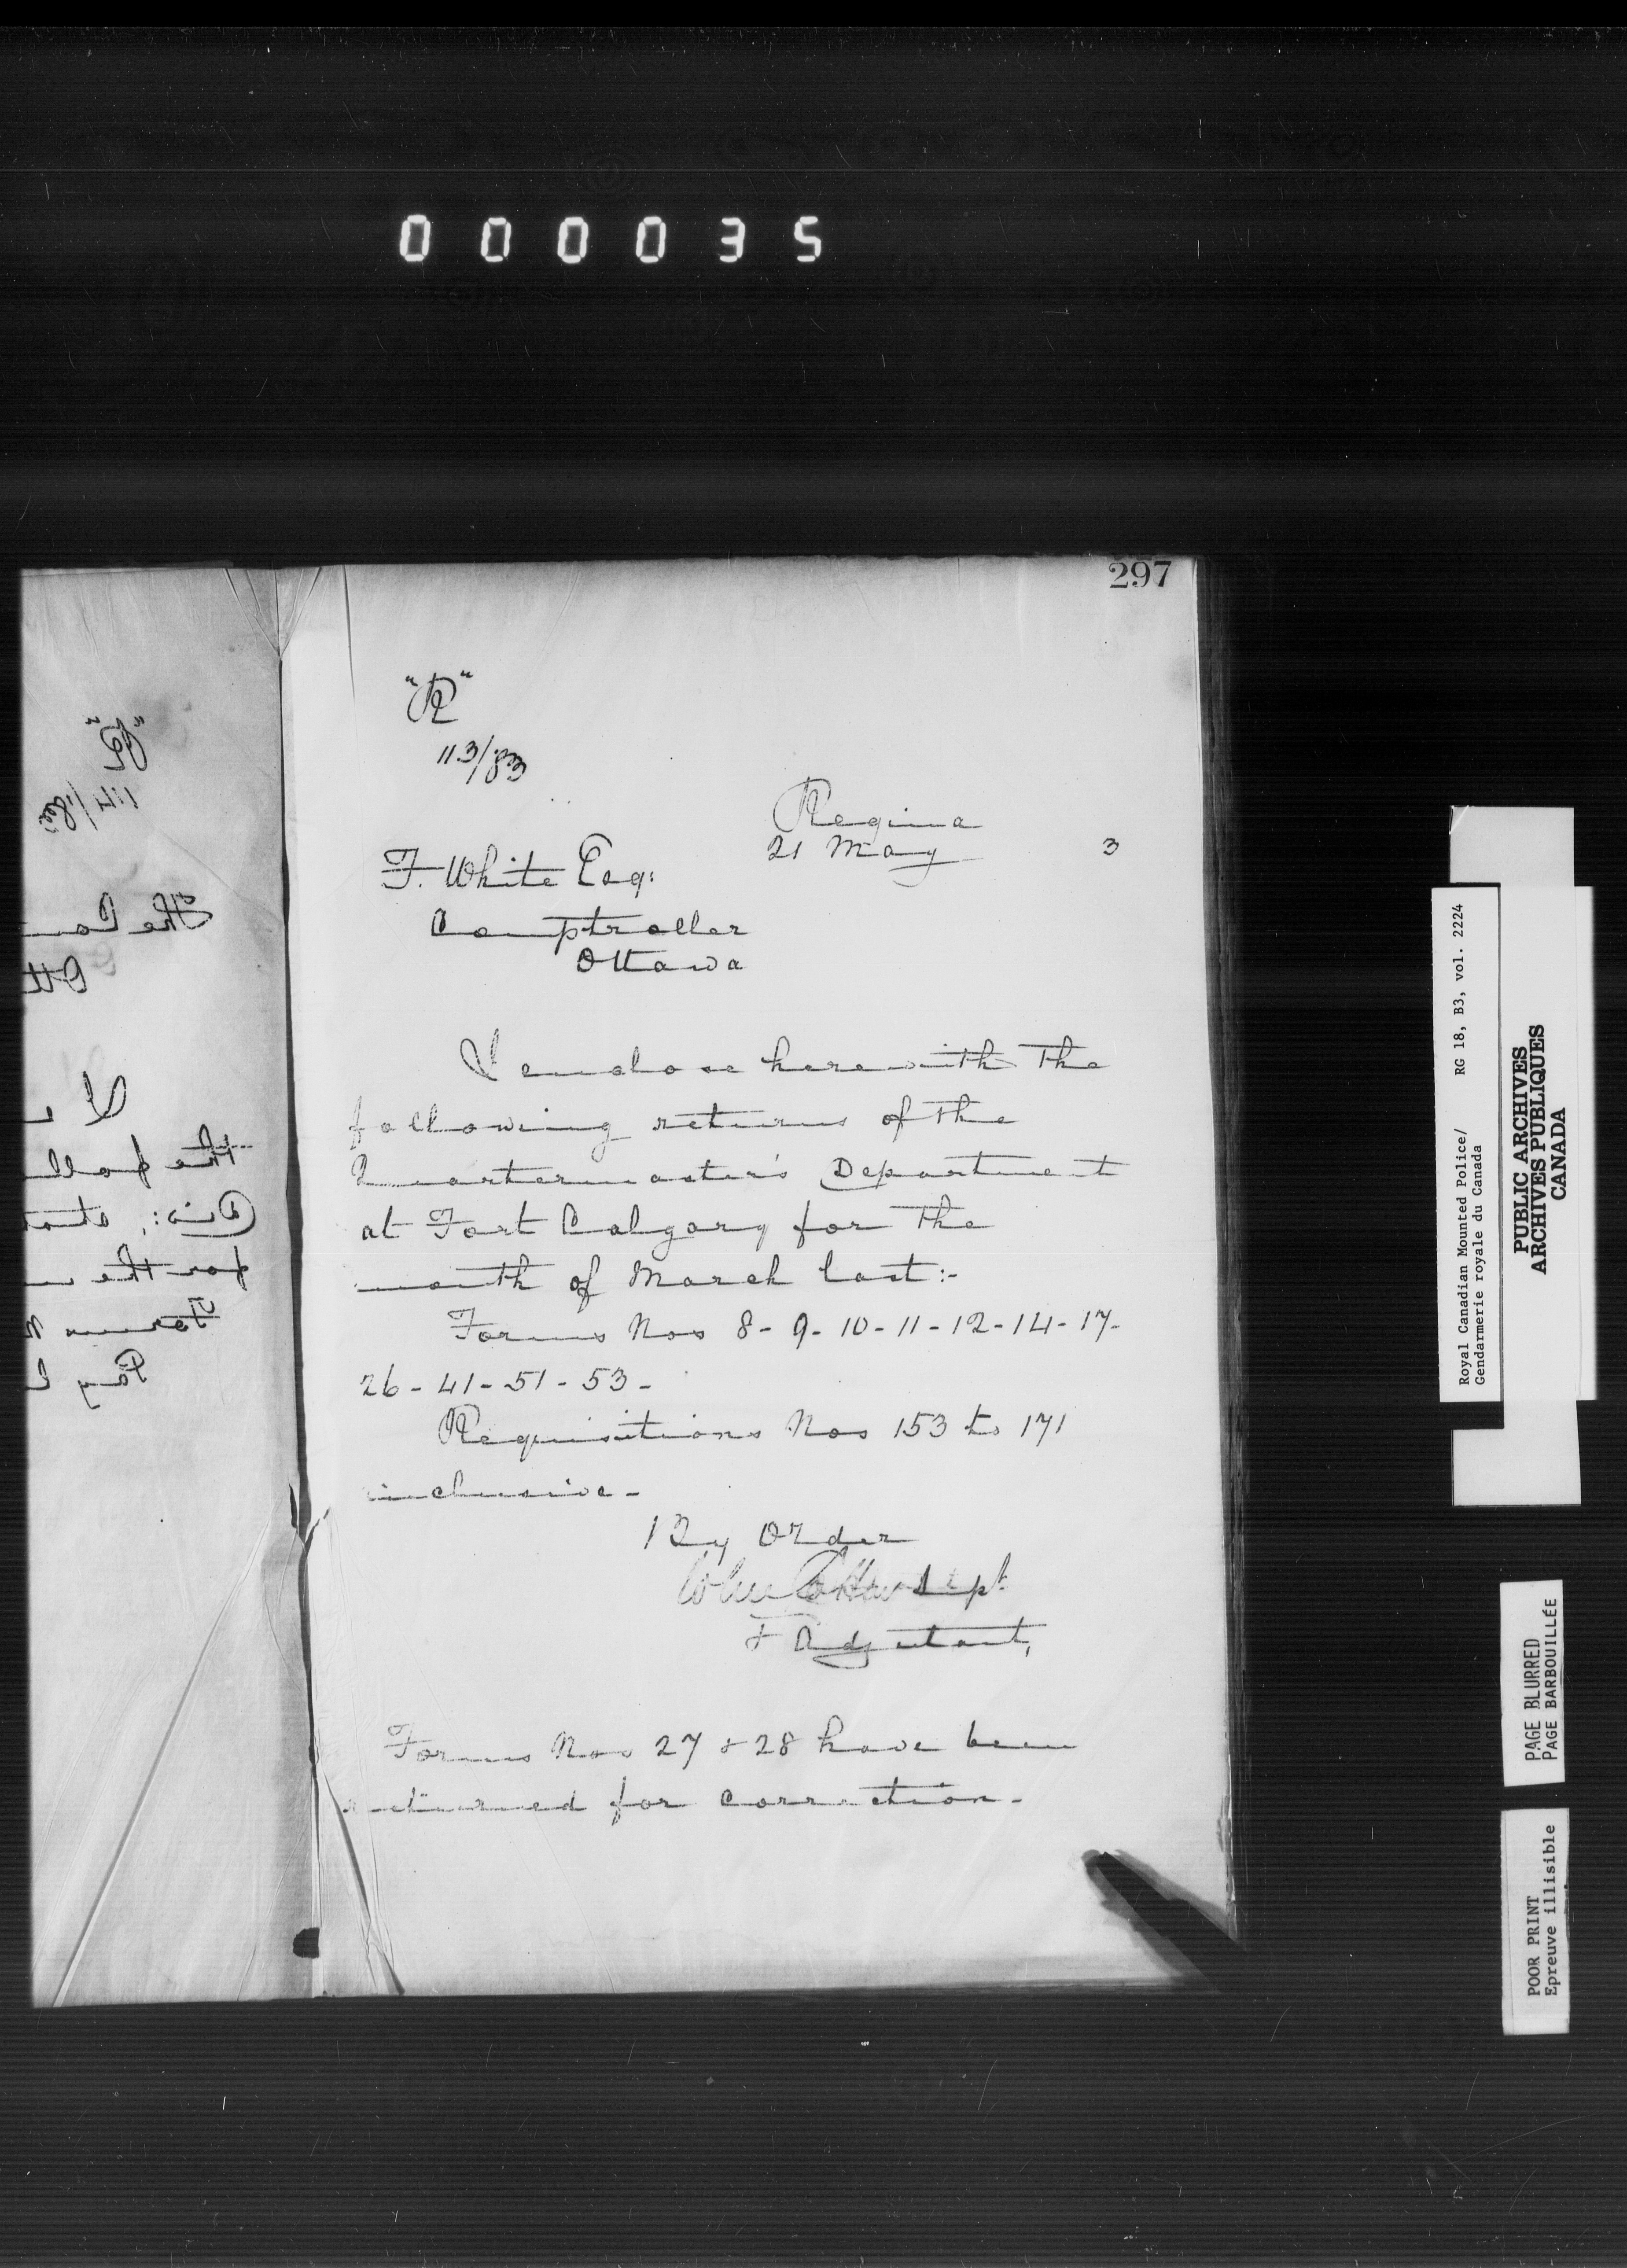 000035
297
"R"
113/83
Regina
21 May 3
F. White Esq:
Comptroller
Ottawa
I enclose herewith the
following returns of the
Quartermaster's Department
at Fort Calgary for the
month of March last:-
Forms Nos 8-9-10-11-12-14-17-
26-41-51-53-
Requisitions Nos 153 to 171
inclusive-
By Order
Supt
& Adjutant,
Forms Nos 27 & 28 have been
returned for correction-
"R"
114/83
The Com
Ott
the follo
for the m
Forms N
Pay
Royal Canadian Mounted Police/ RG 18, B3, vol. 2224
Gendarmerie royale du Canada
PUBLIC ARCHIVES
ARCHIVES PUBLIQUES
CANADA
PAGE BLURRED
PAGE BARBOUILLÉE
POOR PRINT
Epreuve illisible